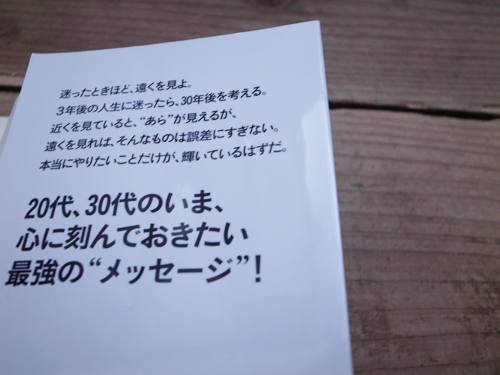 迷ったときほど、遠くを見よ。
3年後の人生に迷ったら、30年後を考える。
近くを見ていると、“あら”が見えるが、
遠くを見れば、そんなものは誤差にすぎない。
本当にやりたいことだけが、輝いているはずだ。
20代、30代のいま、
心に刻んでおきたい
最強の“メッセージ”!